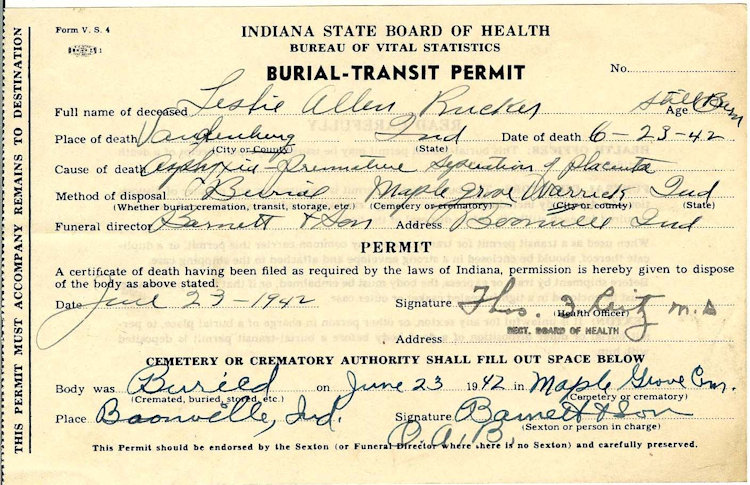 Form V. S. 4
INDIANA STATE BOARD OF HEALTH
BUREAU OF VITAL STATISTICS
BURIAL-TRANSIT PERMIT
No.
Full name of deceased Leslie Allen Rucker Age Still Born
Place of death Vanderburg Ind Date of death 6-23-42
(City or County) (State)
Cause of death Asphyxia - Premature Seperation of Placenta
Method of disposal Burial Maple Grove Warrick Ind
(Whether burial, cremation, transit, storage, etc.) (Cemetery or crematory) (City or county) (State)
Funeral director Barnett & Son Address Boonville Ind
PERMIT
A certificate of death having been filed as required by the laws of Indiana, permission is hereby given to dispose
of the body as above stated.
Date June 23-1942 Signature Thos. M.D
(Health Officer)
Address DECT. BOARD OF HEALTH
CEMETERY OR CREMATORY AUTHORITY SHALL FILL OUT SPACE BELOW
Body was Buried on June 23 1942 in Maple Grove Cem.
(Cremated, buried, stored, etc.) (Cemetery or crematory)
Place Boonville, Ind. Signature Barnett & Son
(Sexton or person in charge)
C. A. B.
This Permit should be endorsed by the Sexton (or Funeral Director where there is no Sexton) and carefully preserved.
THIS PERMIT MUST ACCOMPANY REMAINS TO DESTINATION